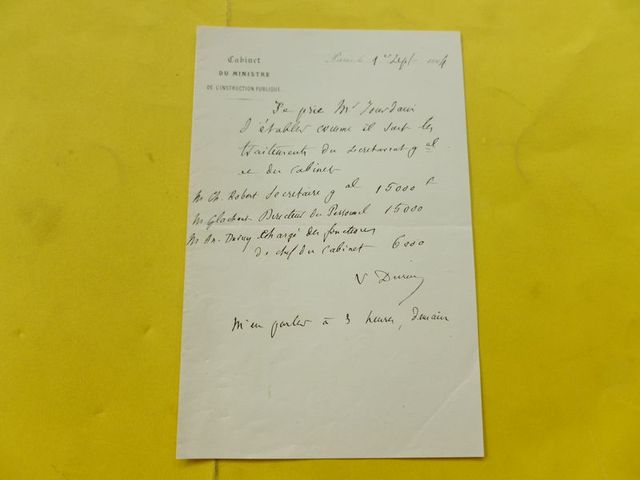 Cabinet
DU MINISTRE
DE L'INSTRUCTION PUBLIQUE.
Paris, le 1er Sept 4
Je prie Mr Jourdain
d'établir comme il suit les
traitements du secretariat gal
et du cabinet
Mr Ch. Robert Secretaire gal 15000 f
Mr Glachant Directeur du Personnel 15000
Mr An. Duruy chargé des fonctions
de chef du cabinet 6000
V Duruy
M'en parler à 3 heures, demain